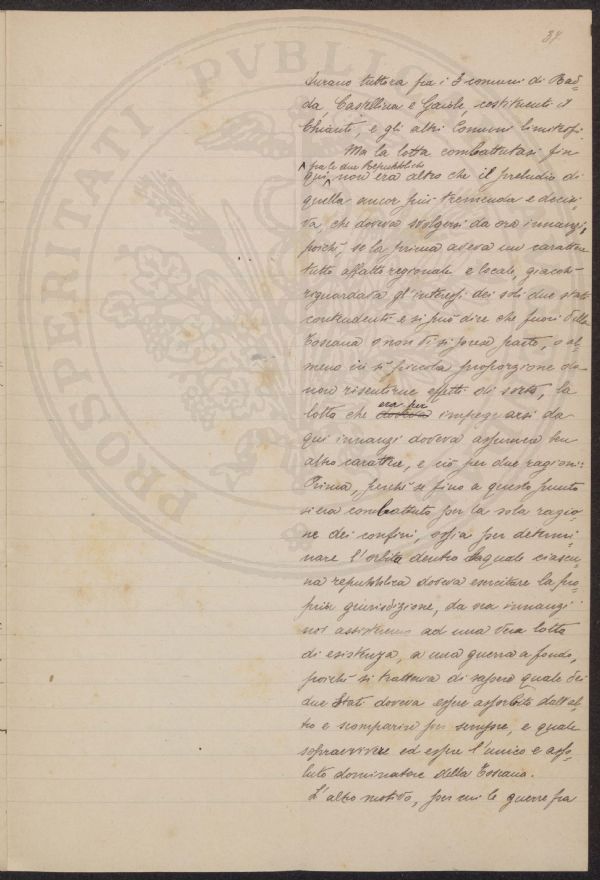 PROSPERITATI PVBLICAE
37
durano tuttora fra i 3 comuni di Rad=
da, Castellina e Gaiole, costituenti il
Chianti, e gli altri Comuni limitrofi.
Ma la lotta combattutasi fin
fra le due Repubbliche
qui, non era altro che il preludio di
quella ancor più tremenda e decisi=
va, che doveva svolgersi da ora innanzi,
poichè, se la prima aveva un carattere
tutto affatto regionale e locale, giacchè
riguardava gl'interessi dei soli due stati
contendenti e si può dire che fuori della
Toscana o non vi si presa parte, o al=
meno in sì piccola proporzione da
non risentirne effetti di sorta, la
era per
lotta che doveva impegnarsi da
qui innanzi doveva assumere un
altro carattere, e ciò per due ragioni:
Prima, perchè se fino a questo punto
si era combattuto per la sola ragio=
ne dei confini, ossia per determi=
nare l'orbita dentro la quale ciascu=
na repubblica doveva esercitare la pro=
pria giurisdizione, da ora innanzi
noi assisteremo ad una vera lotta
di esistenza, a una guerra a fondo,
poichè si trattava di sapere quale dei
due Stati doveva essere assorbito dall'al=
tro e scomparire per sempre, e quale
sopravvivere ed essere l'unico e asso=
luto dominatore della Toscana.
L'altro motivo, per cui le guerre fra